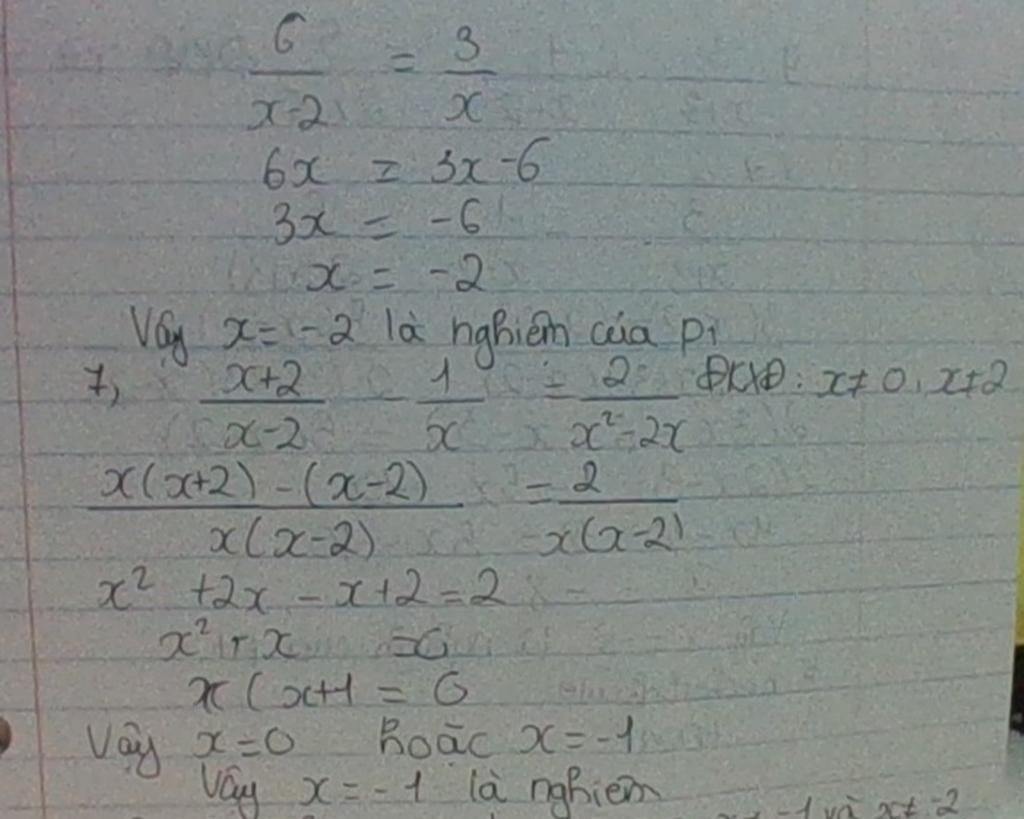 6/(x-2) = 3/x
6x = 3x-6
3x = -6
x = -2
Vậy x = -2 là nghiệm của pt
7, (x+2)/(x-2) - 1/x = 2/(x²-2x) ĐKXĐ: x≠0, x≠2
(x(x+2) - (x-2))/(x(x-2)) = 2/(x(x-2))
x² +2x - x+2 = 2
x² + x = 0
x(x+1 = 0
Vậy x=0 hoặc x=-1
Vậy x=-1 là nghiệm
-1 và x≠-2